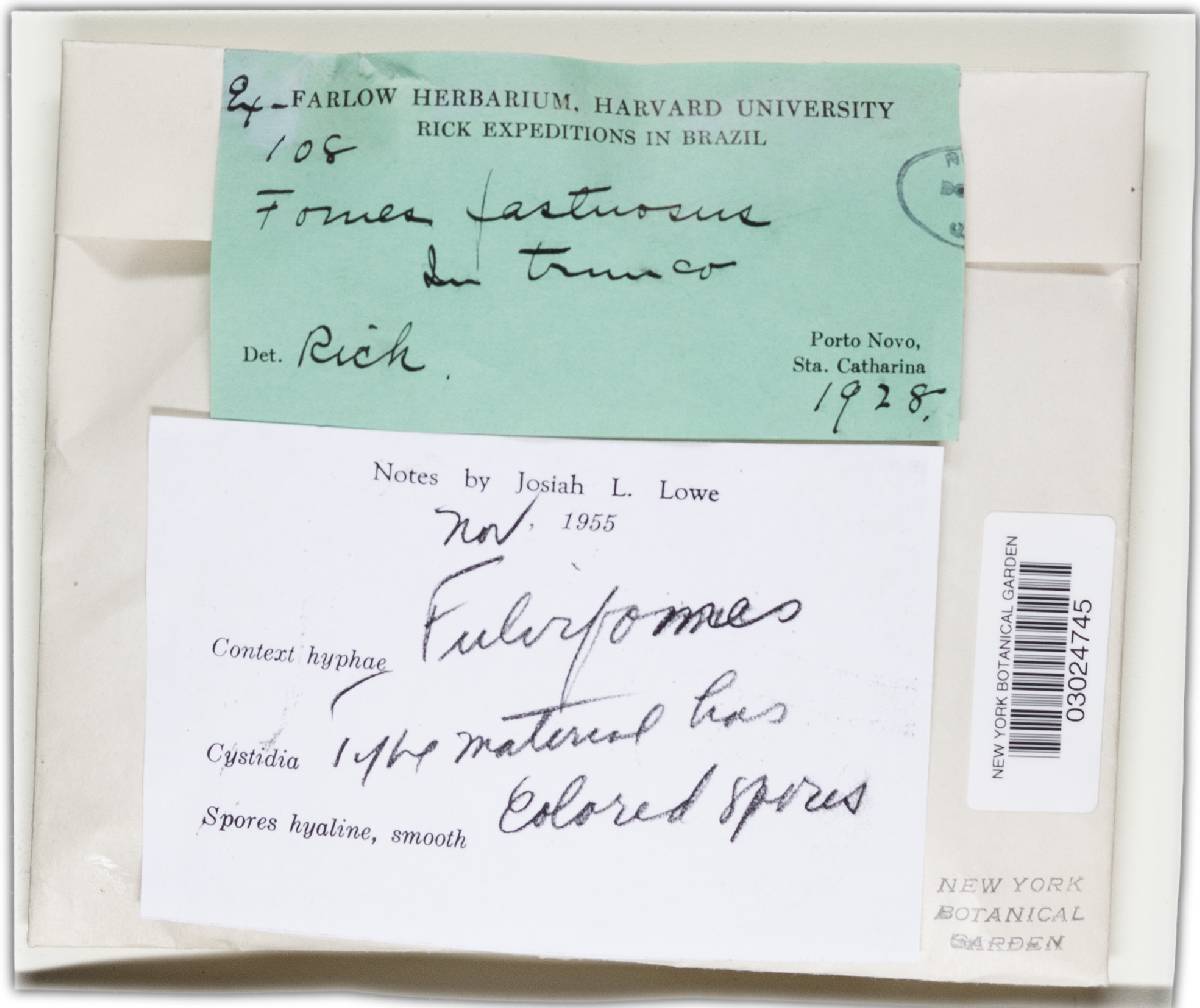 Ex- FARLOW HERBARIUM, HARVARD UNIVERSITY
RICK EXPEDITIONS IN BRAZIL
108
Fomes fastuosus
In trunco
Det. Rick.
Porto Novo,
Sta. Catharina
1928.
Notes by Josiah L. Lowe
Nov, 1955
Context hyphae Fulvifomes
Cystidia Type material has
Spores hyaline, smooth Colored spores
NEW YORK BOTANICAL GARDEN
03024745
NEW YORK
BOTANICAL
GARDEN